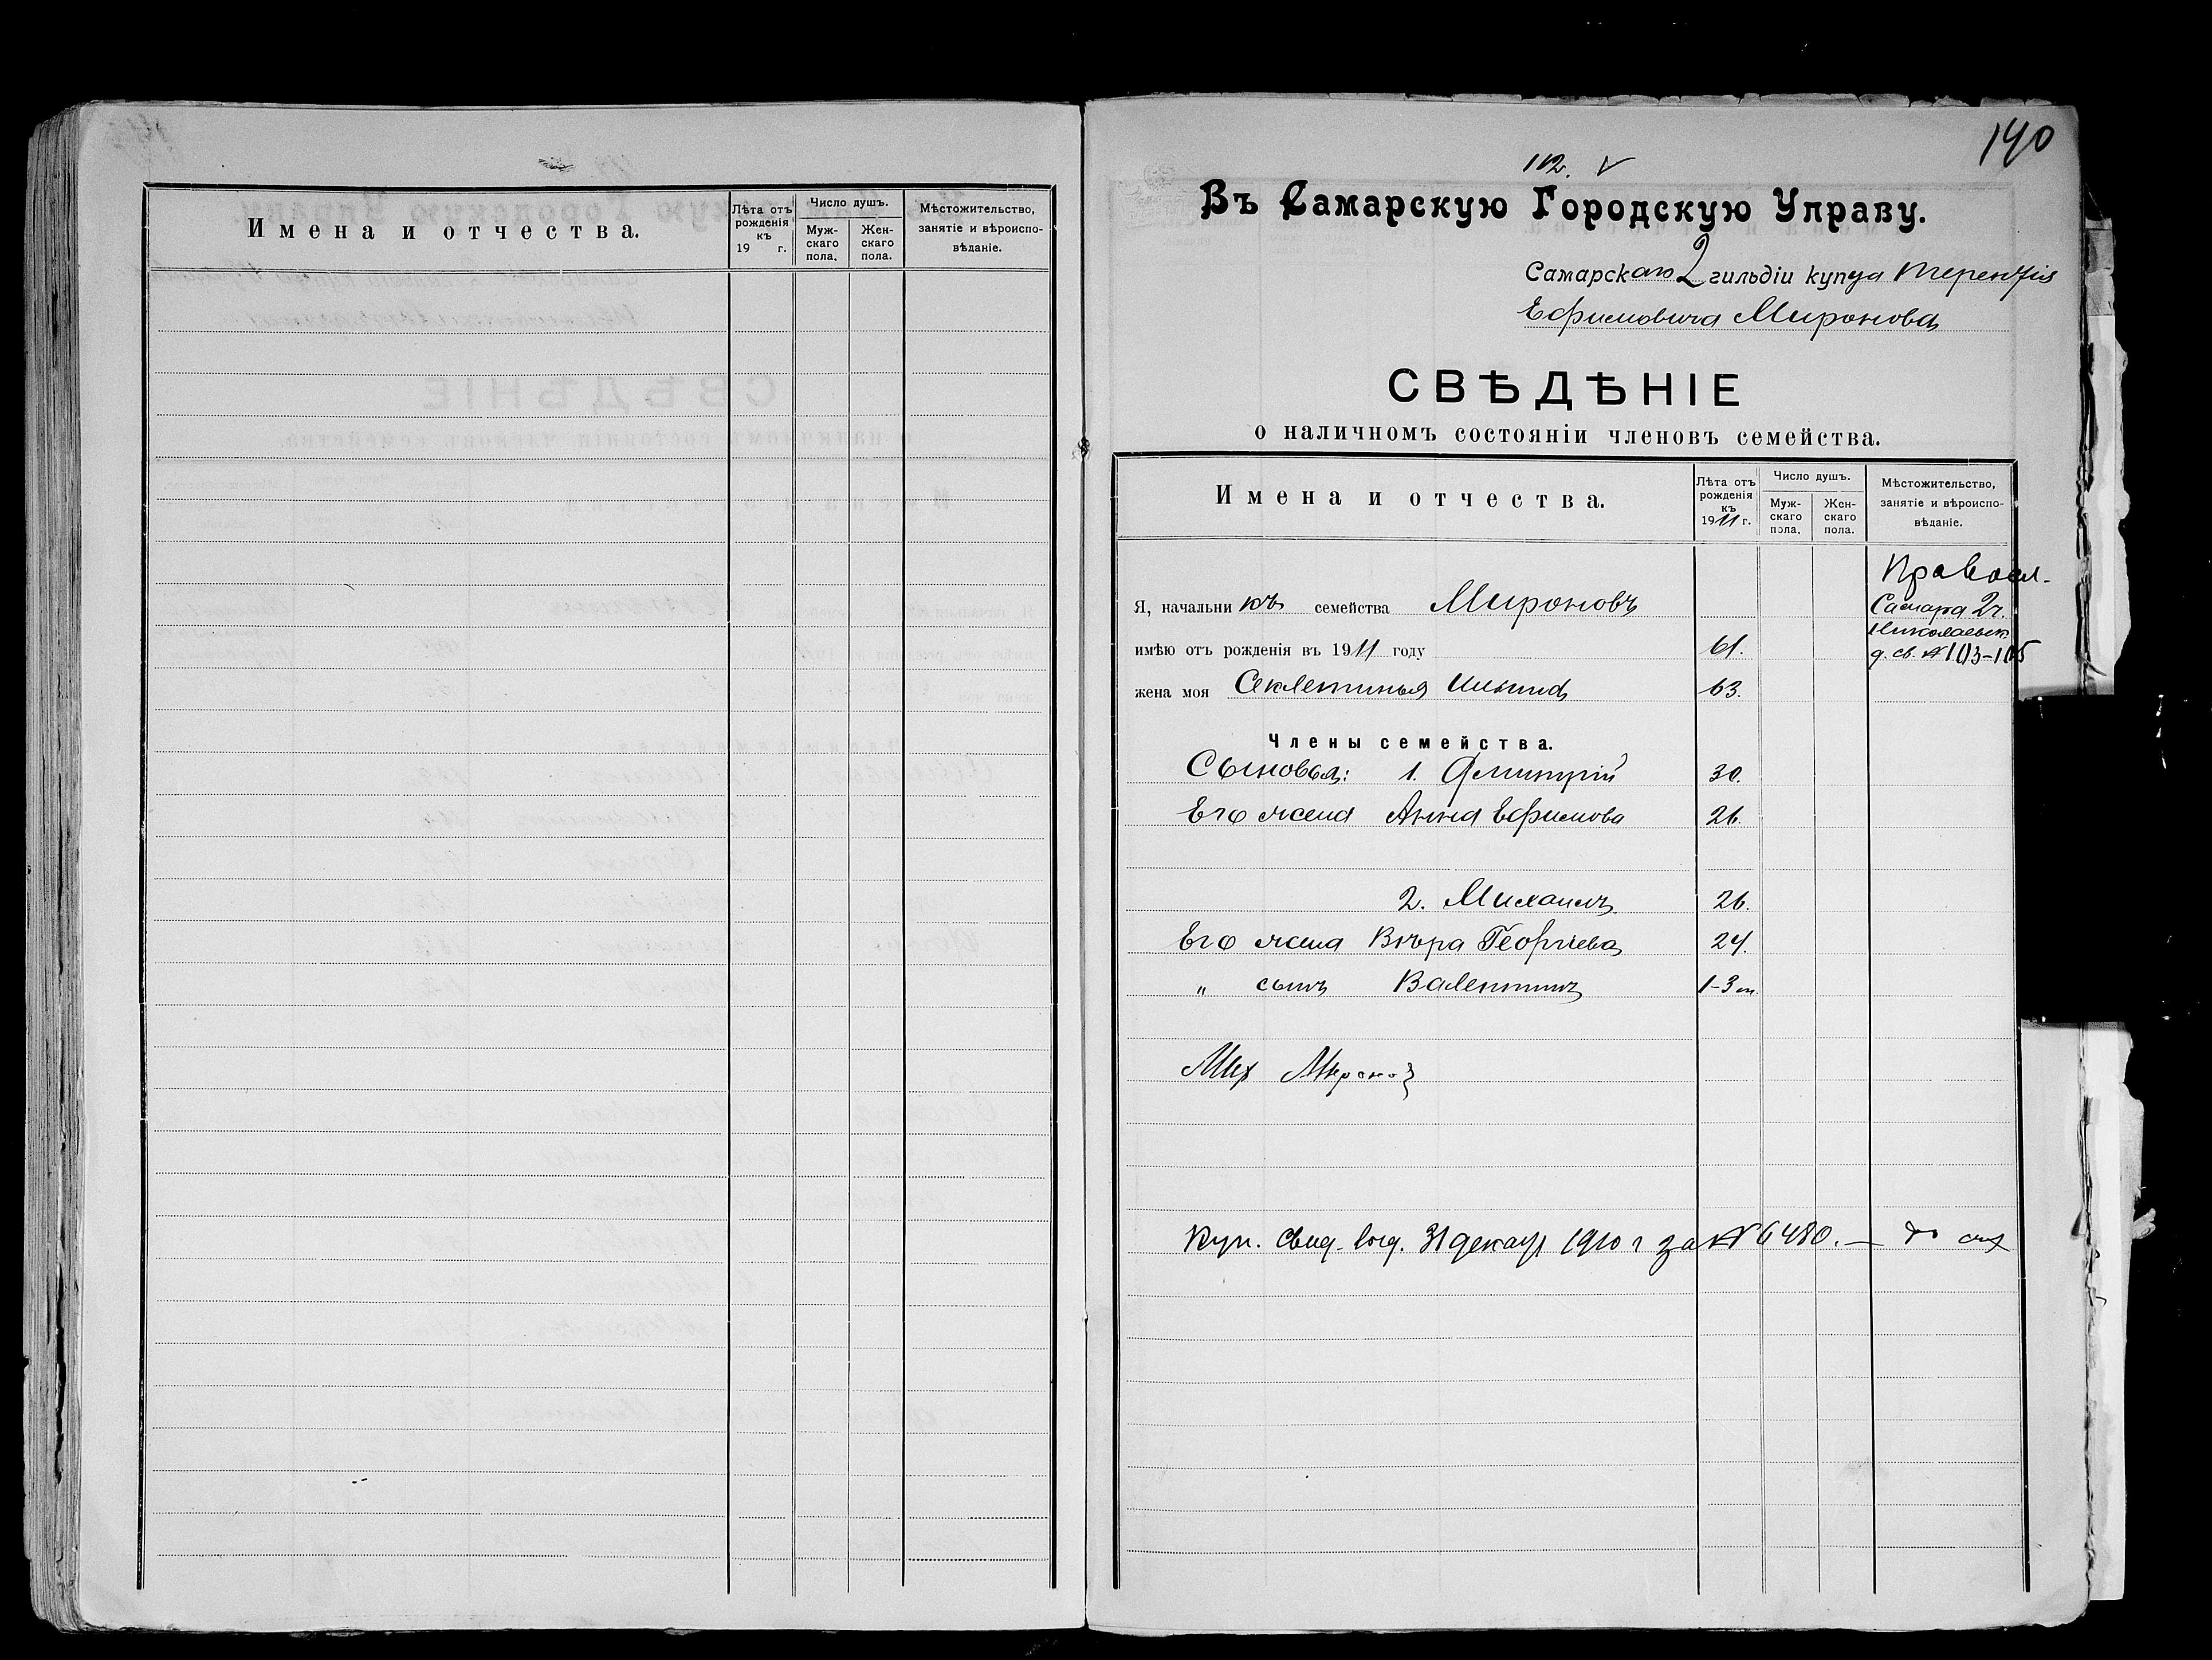 Имена и отчества.
Лѣта отъ рожденія къ 19 г.
Число душъ.
Муж-скаго пола.
Жен-скаго пола.
Мѣстожительство, занятіе и вѣроиспо-вѣданіе.
140
112. V
Въ Самарскую Городскую Управу.
Самарскаго 2 гильдіи купца Терентія
Ефимовича Миронова
СВѢДѢНІЕ
о наличномъ состояніи членовъ семейства.
Имена и отчества.
Лѣта отъ рожденія къ 1911 г.
Число душъ.
Муж-скаго пола.
Жен-скаго пола.
Мѣстожительство, занятіе и вѣроиспо-вѣданіе.
Правосл.
Я, начальникъ семейства Мироновъ
Самара 2 ч.
Николаевск.
имѣю отъ рожденія въ 1911 году 61.
д. св. № 103-105
жена моя Секлетинья 63.
Члены семейства.
Сыновья: 1. Дмитрій 30.
Его жена Анна Ефимова 26.
2. Михаилъ 26.
Его жена Вѣра Георгіева 24.
" сынъ Валентинъ 1-3 м.
Мих Миронов
Куп. свид. выд. 31 декаб 1910 г за № 6480. —